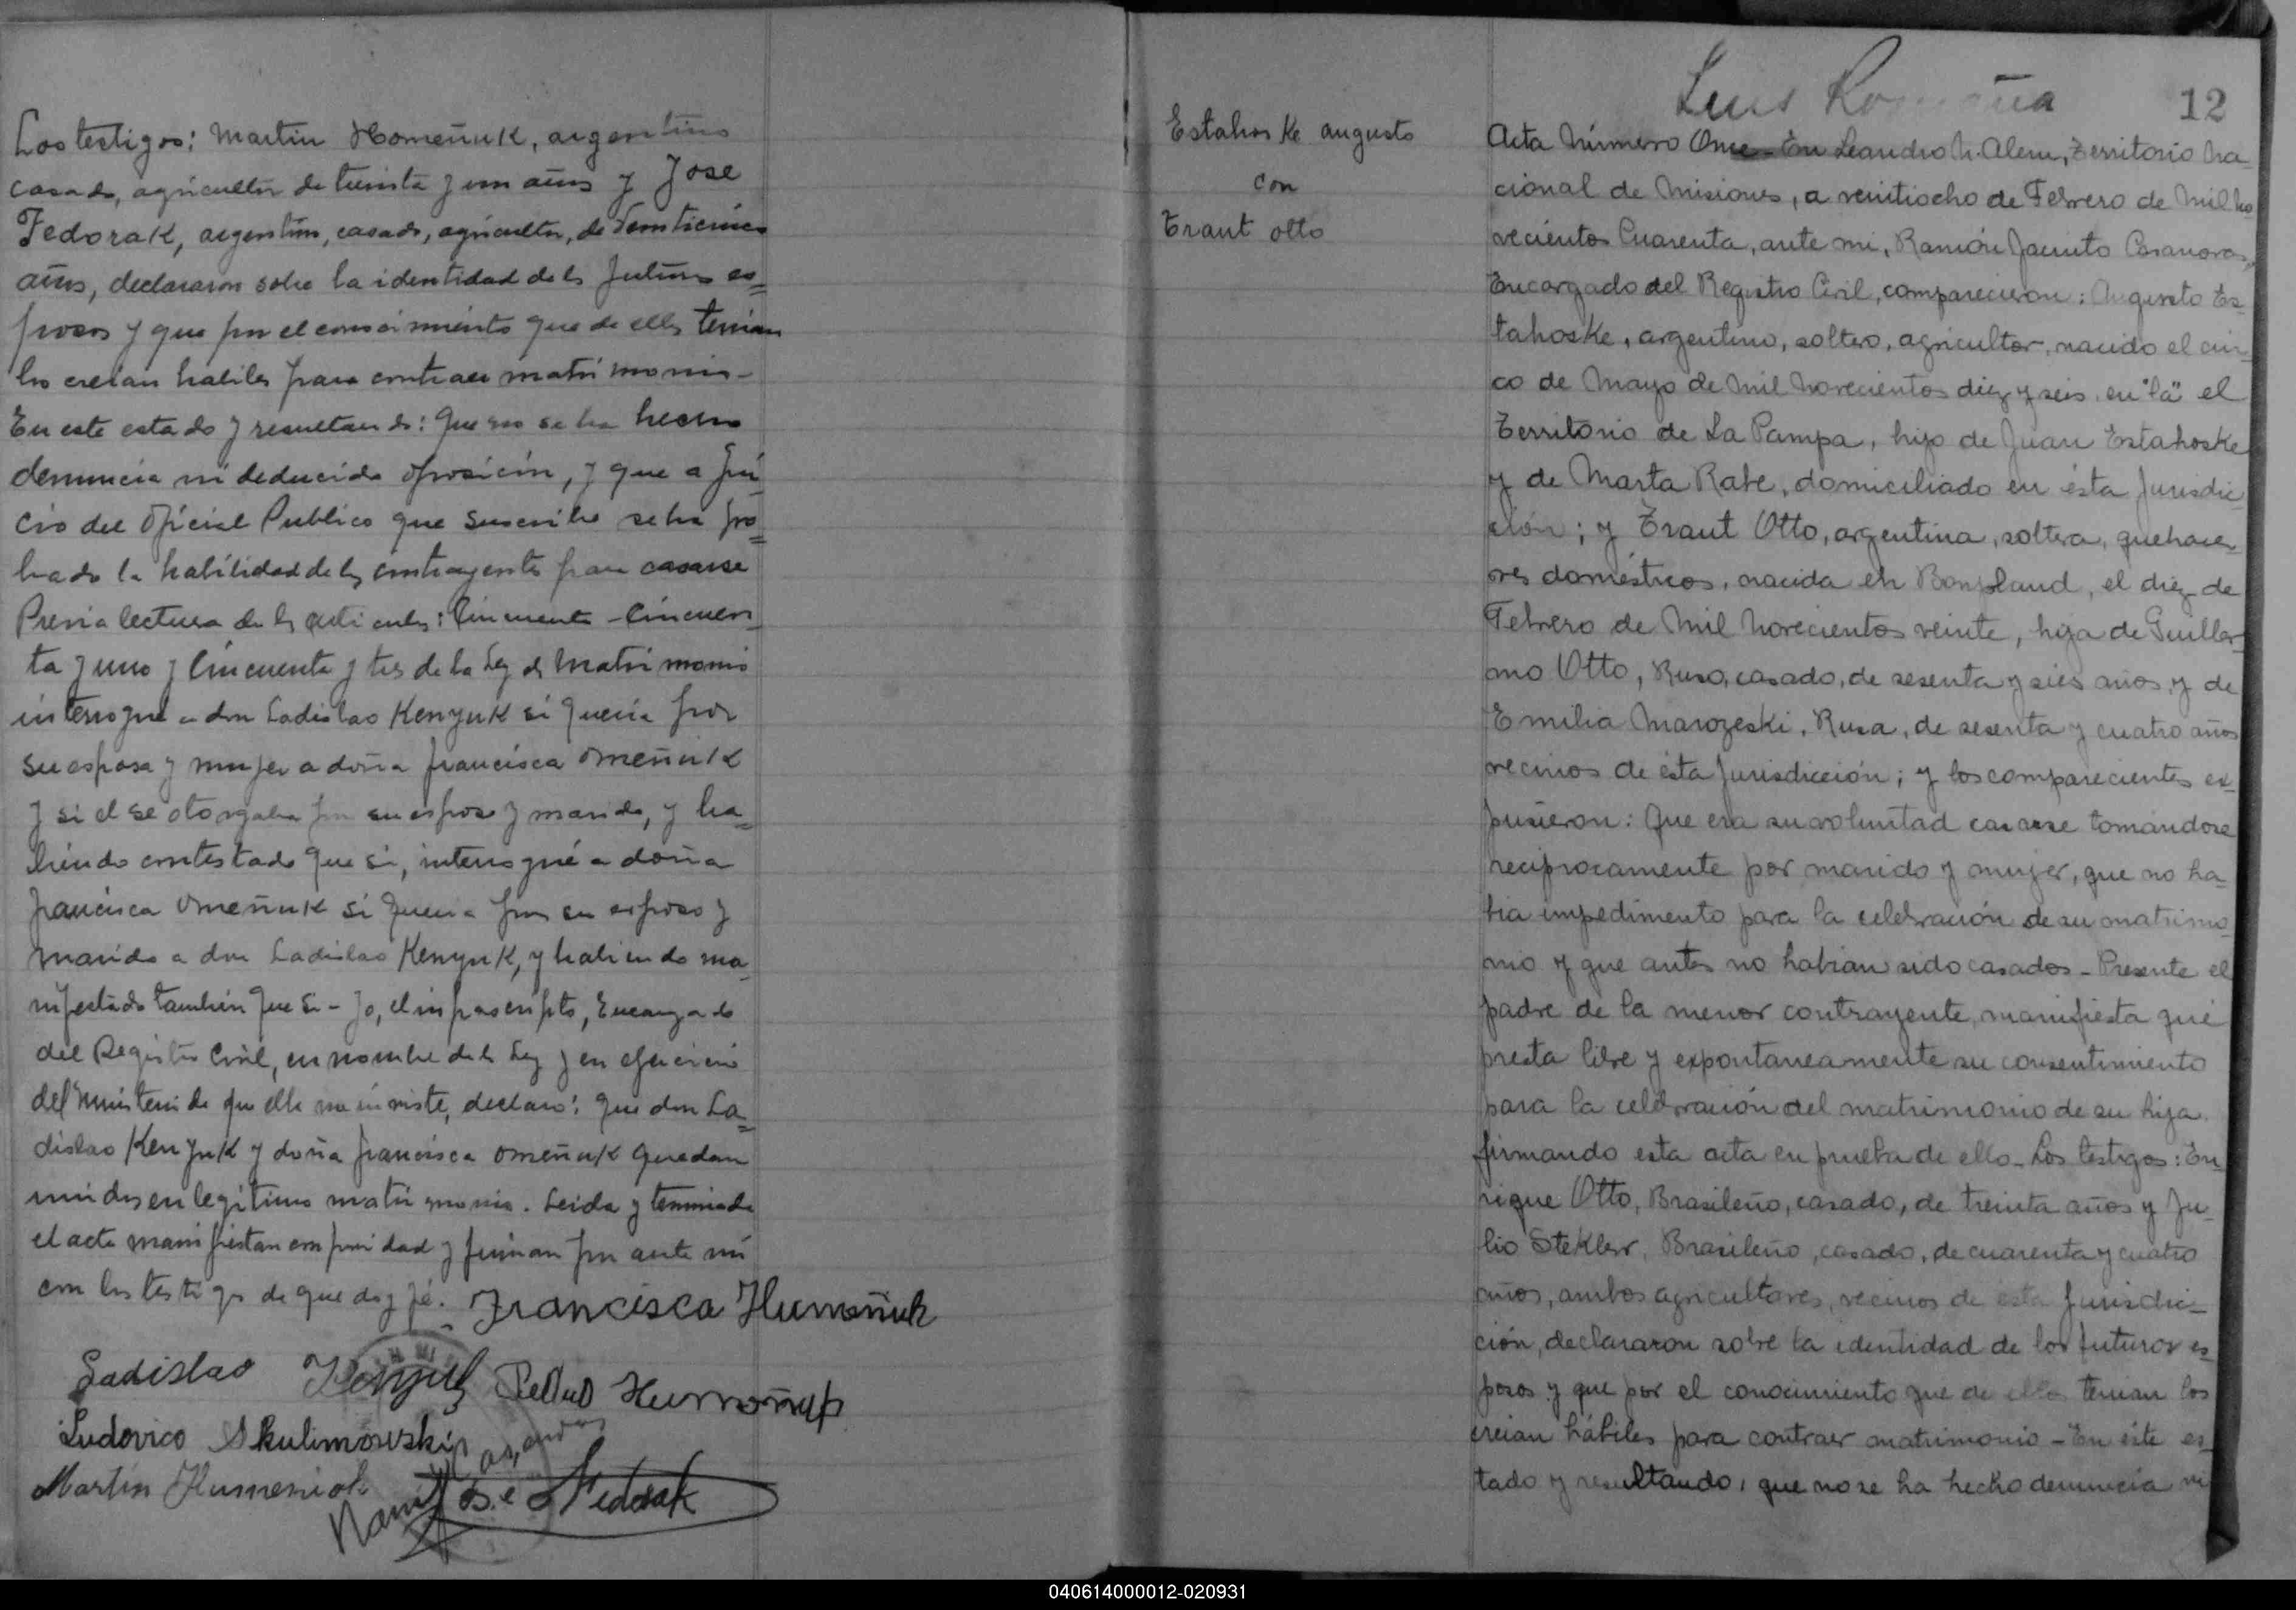 Los testigos: Martin Homeñuk, argentino
casado, agricultor de treinta y un años y Jose
Fedorak, argentino, casado, agricultor, de veinticinco
años, declararon sobre la identidad de ls futuros es=
posos y que por el conocimiento que de ellos tenian
los creian habiles para contraer matrimonio-
En este estado y resultando: Que no se ha hecho
denuncia ni deducido oposición, y que a jui
cio del Oficial Publico que suscribe se ha pro=
bado la habilidad de ls contrayentes para casarse
Previa lectura de ls articulos: Cincuenta - Cincuen_
ta y uno y Cincuenta y tres de la Ley de Matrimonio
interrogué a don Ladislao Kenyuk si queria por
su esposa y mujer a doña francisca Omeñuk
y si el se otorgaba por su esposo y marido, y ha=
biendo contestado que si, interrogué a doña
francisca Omeñuk si queria por su esposo y
marido a don Ladislao Kenyuk, y habiendo ma_
nifestado tambien que si - yo, el infrascripto, Encargado
del Registro Civil, en nombre de la Ley y en ejercicio
del ministerio de que ella me inviste, declaro: que don La=
dislao Kenyuk y doña francisca Omeñuk quedan
unidos en legitimo matrimonio. Leida y terminada
el acta manifiestan conformidad y firman por ante mi
con los testigos de que doy fé.
Francisca Humeñuk
Ladislao Kenyuk Pedro Humoñuk
Ludovico Skulimowski
Martín Humeniuk
José Fedorak
Estahoske augusto
con
Traut Otto
Luis Romaña
12
Acta Número Once - En Leandro N. Alem, Territorio Na
cional de Misiones, a veintiocho de Febrero de Mil No
vecientos Cuarenta, ante mi, Ramón Jacinto Casanovas,
Encargado del Registro Civil, comparecieron: Augusto Es_
tahoske, argentino, soltero, agricultor, nacido el cin_
co de Mayo de Mil Novecientos diez y seis, en "la" el
Territorio de La Pampa, hijo de Juan Estahoske
y de Marta Rabe, domiciliado en ésta Jurisdic
ción; y Traut Otto, argentina, soltera, quehace
res domésticos, nacida en Bonpland, el diez de
Febrero de Mil Novecientos veinte, hija de Guiller_
mo Otto, Ruso, casado, de sesenta y seis años y de
Emilia Marozeski, Rusa, de sesenta y cuatro años
vecinos de ésta Jurisdicción; y los comparecientes ex_
pusieron: Que era su voluntad casarse tomándose
reciprocamente por marido y mujer, que no ha_
bia impedimento para la celebración de su matrimo_
nio y que antes no habian sido casados - Presente el
padre de la menor contrayente, manifiesta que
presta libre y expontaneamente su consentimiento
para la celebración del matrimonio de su hija.
firmando esta acta en prueba de ello - Los testigos: En_
rique Otto, Brasileño, casado, de treinta años y Ju_
lio Stekler, Brasileño, casado, de cuarenta y cuatro
años, ambos agricultores, vecinos de esta Jurisdic_
ción, declararon sobre la identidad de los futuros es_
posos y que por el conocimiento que de ellos tenian los
creian hábiles para contraer matrimonio - En éste es_
tado y resultando, que no se ha hecho denuncia ni
040614000012-020931